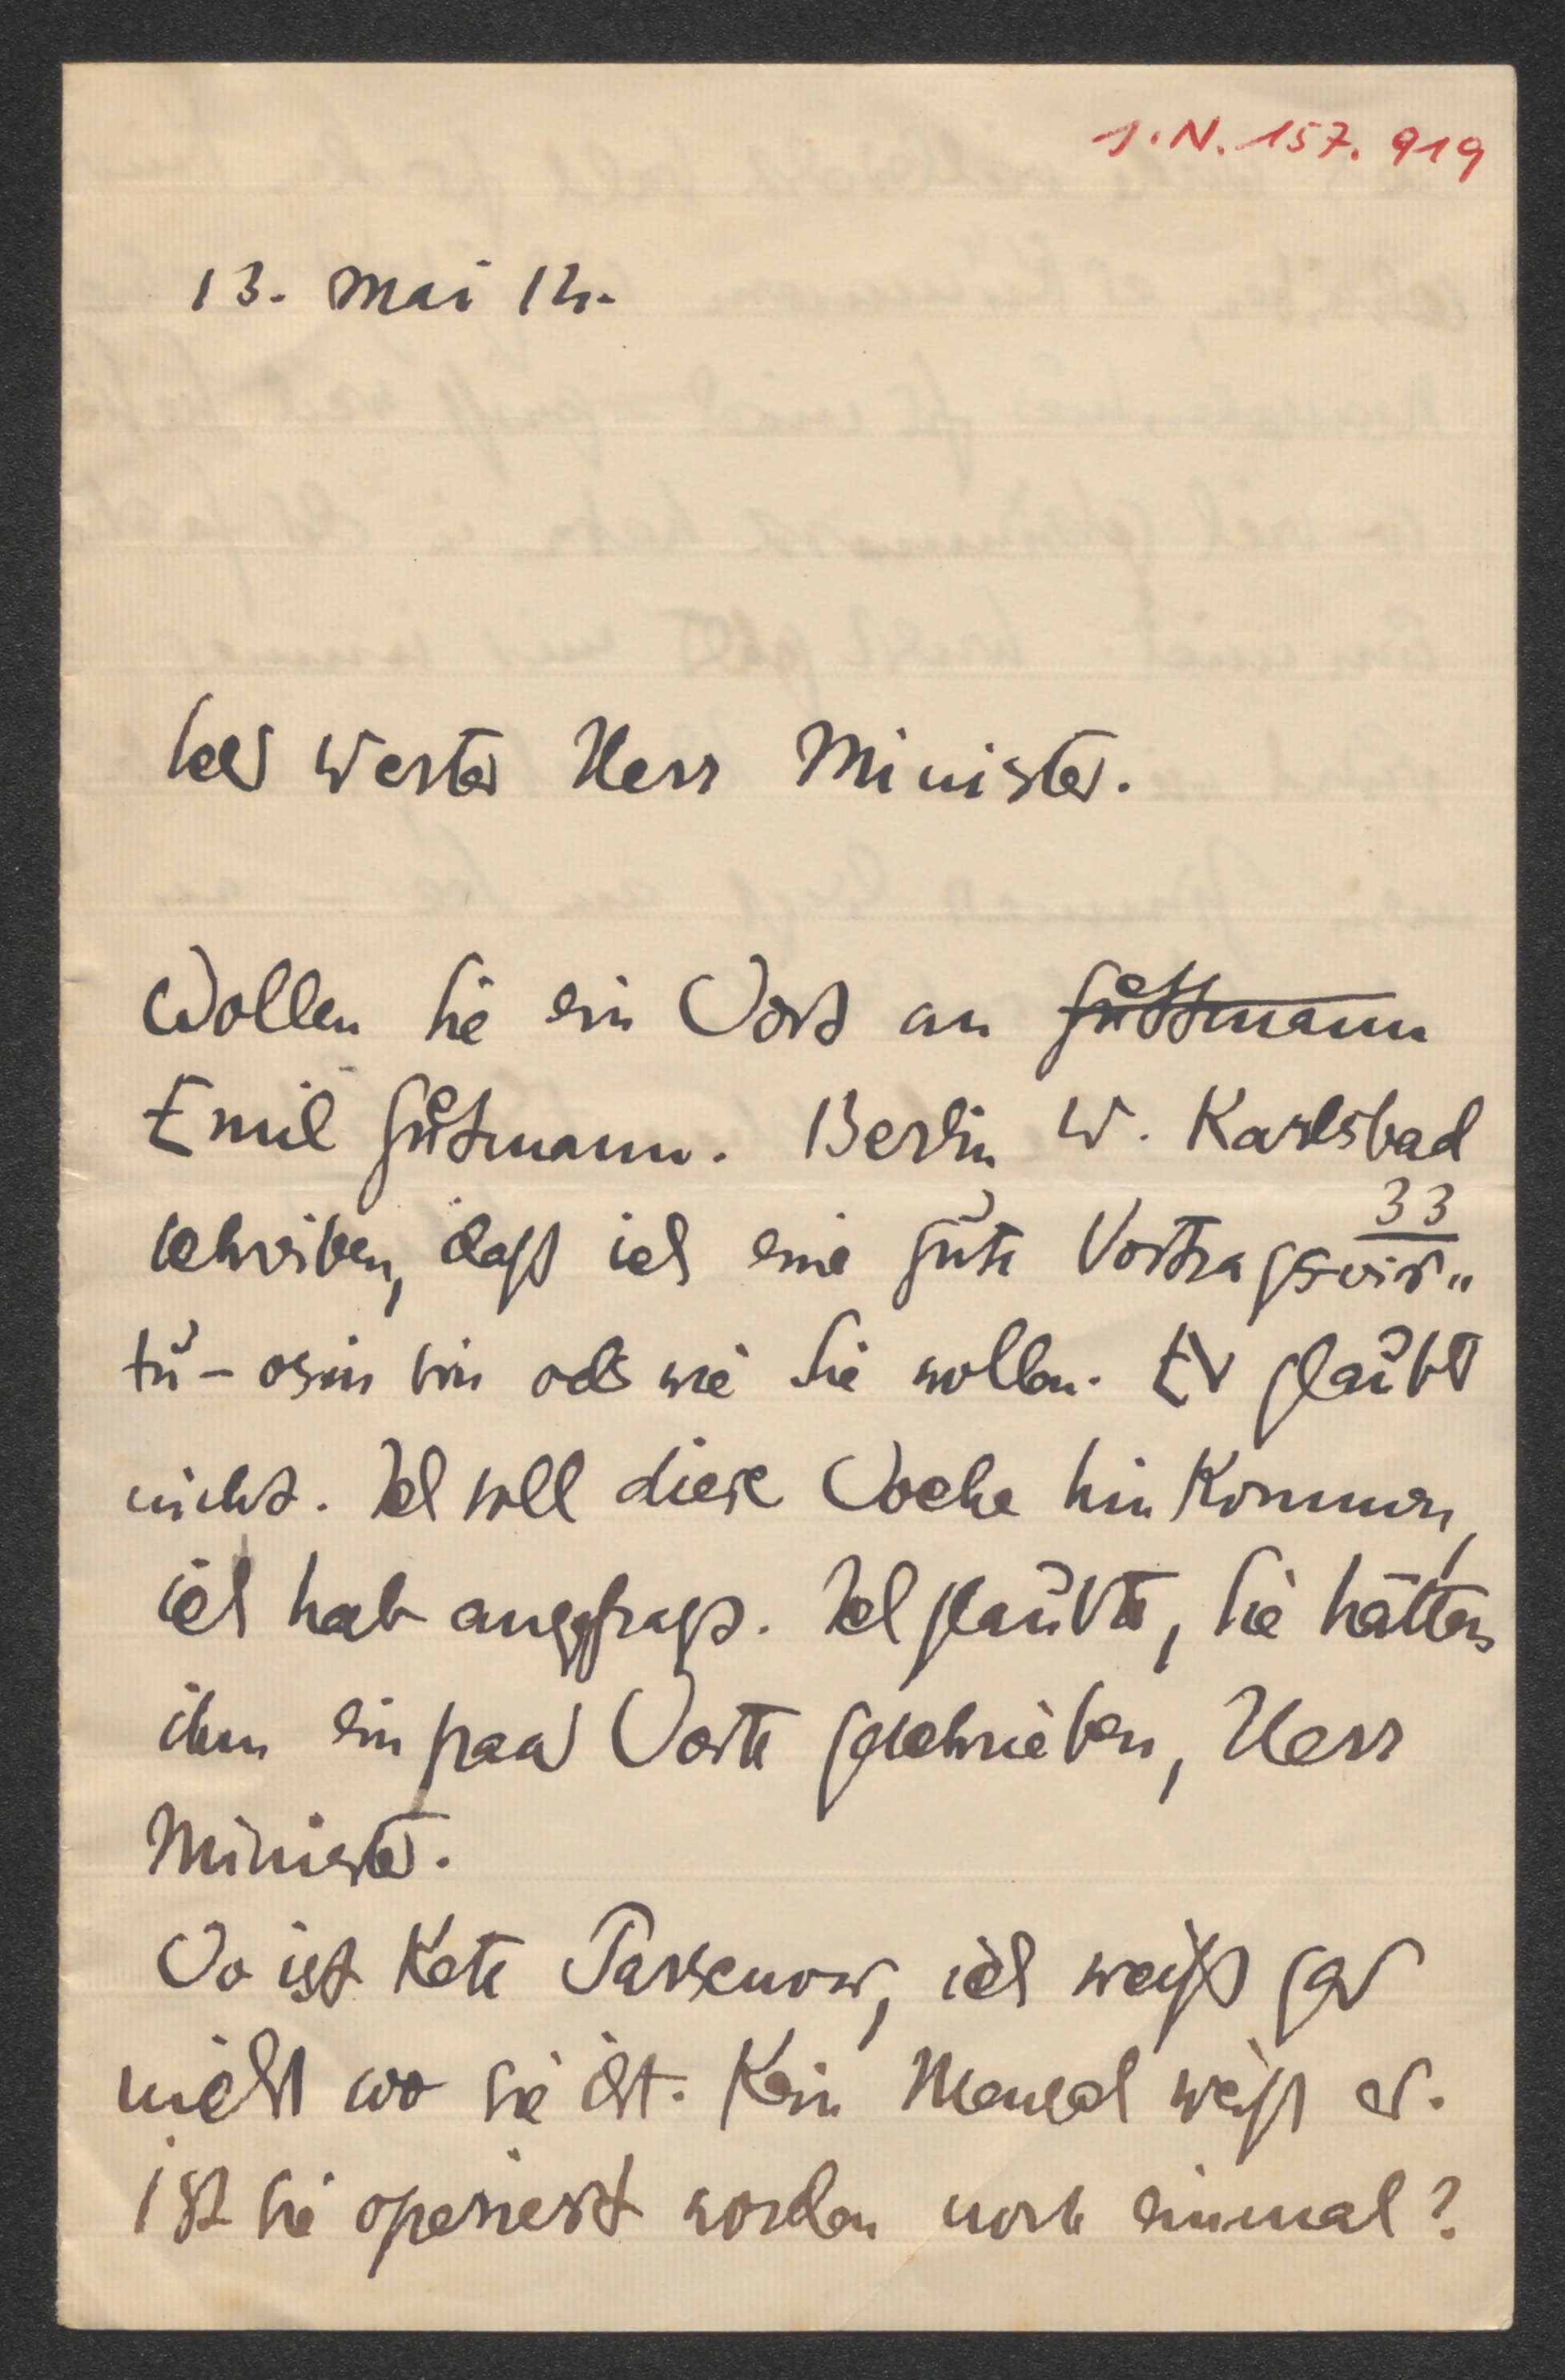 J.N. 157.919
13. Mai 12.
Sehr werter Herr Minister.
Wollen Sie ein Wort an Guttmann
Emil Gutmann. Berlin W. Karlsbad
33
schreiben, daß ich eine gute Vortragsvir„
tu-osin bin oder wie Sie wollen. Er glaubt
nicht. Ich soll diese Woche hinkommen,
ich hab angefragt. Ich glaubte, Sie hätten
ihm ein paar Worte geschrieben, Herr
Minister.
Wo ist Kete Parsenow, ich weiß gar
nicht wo sie ist. Kein Mensch weiß es.
Ist sie operiert worden noch einmal?